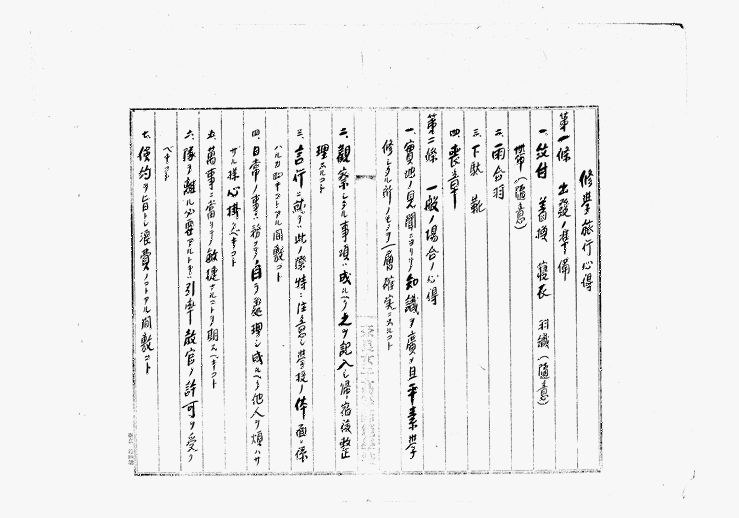 修學旅行心得
第一條 出發ノ準備
一、紋付 着換 寢衣 羽織(隨意)
帶(隨意)
二、雨合羽
三、下駄 靴
四、喪章
第二條 一般ノ場合ノ心得
一、實地ノ見聞ニヨリテ知識ヲ廣メ且平素學
修シタル所ノモノヲ一層確実ニスルコト
二、觀察シタル事項ハ成ルヘク之ヲ記入シ帰宿後整
理スルコト
三、言行ニ就テハ此ノ際特ニ注意シ學校ノ体面ニ係
ハルカ如キコトアル間敷コト
四、日常ノ事ハ務メテ自ラ處理シ成ルヘク他人ヲ煩ハサ
ザル様心掛クベキコト
五、萬事ニ當リテ敏捷ナルコトヲ期スベキコト
六、隊ヲ離ル必要アルトキハ引率教官ノ許可ヲ受ク
ベキコト
七、儉約ヲ旨トシ浪費ノコトアル間敷コト